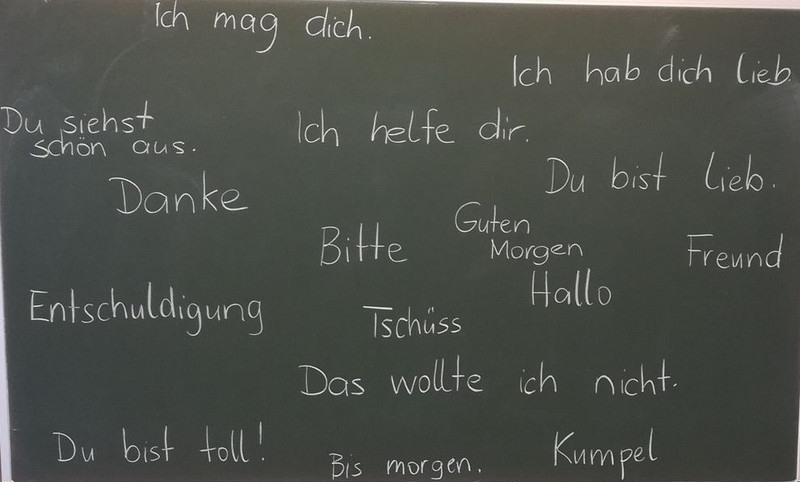 Ich mag dich.
Ich hab dich lieb
Du siehst
schön aus.
Ich helfe dir.
Du bist lieb.
Danke
Guten
Morgen
Bitte
Freund
Hallo
Entschuldigung
Tschüss
Das wollte ich nicht.
Du bist toll!
Bis morgen.
Kumpel